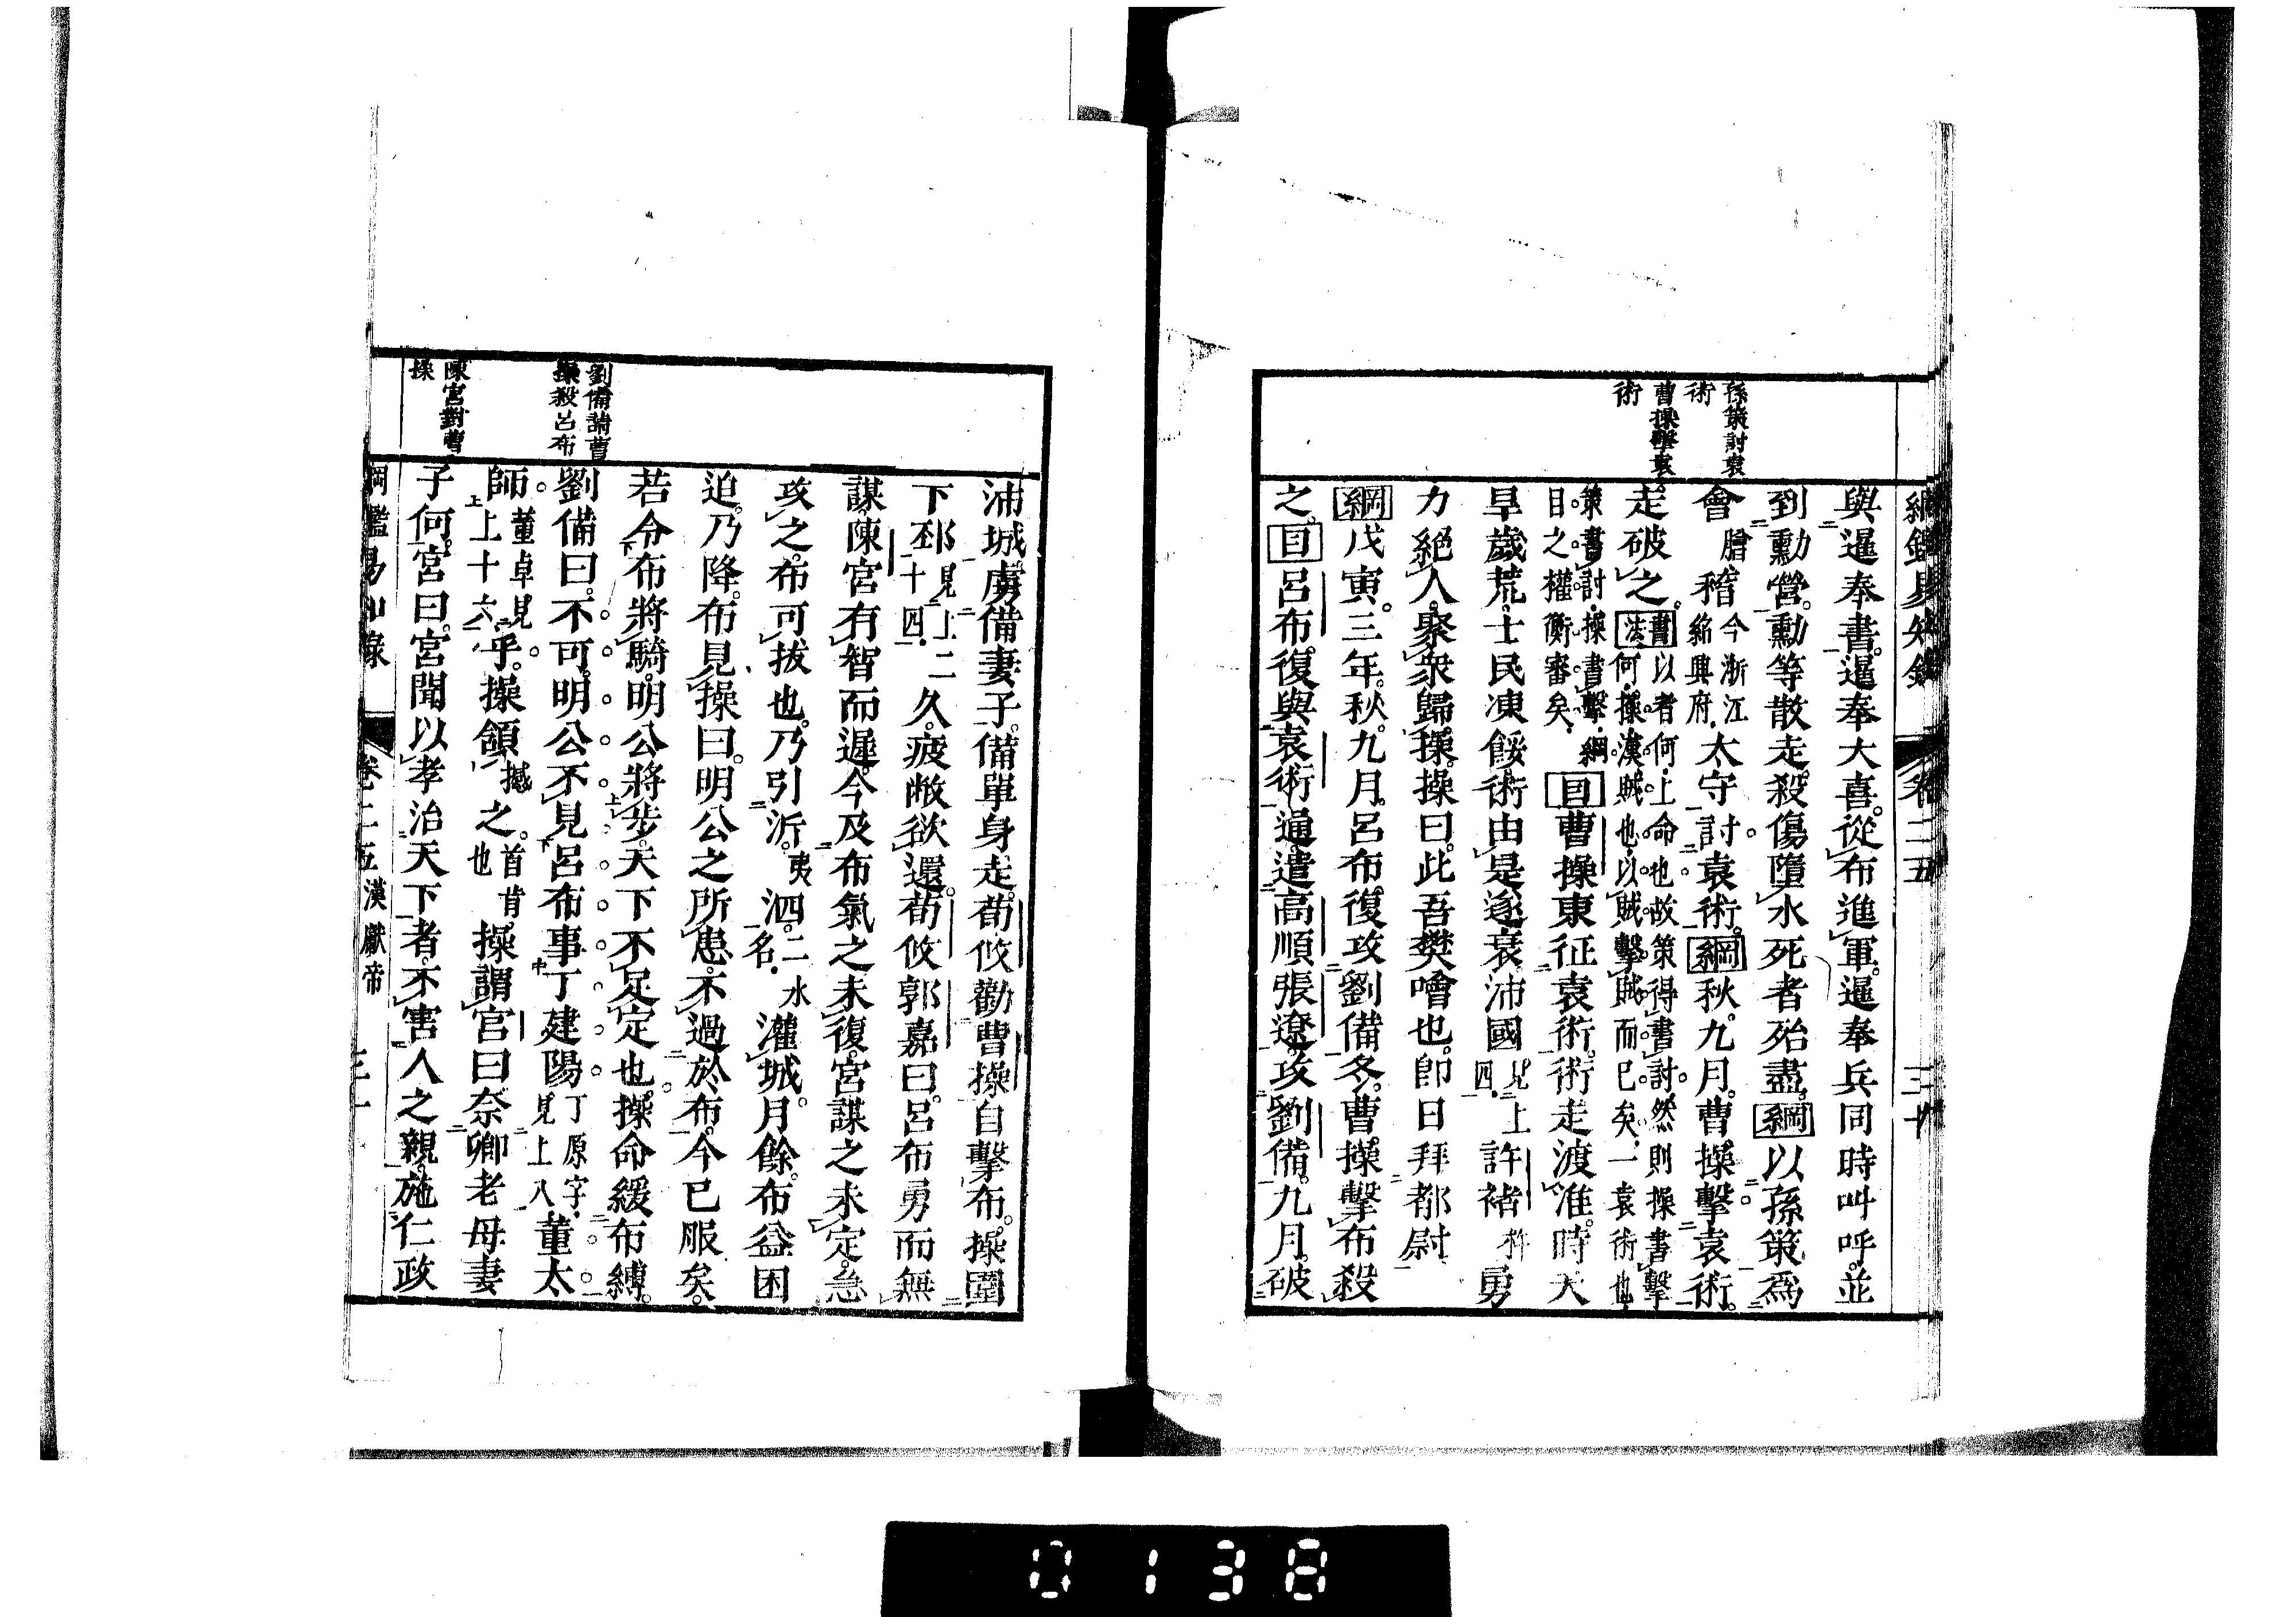 綱鑑易知錄 卷二五 三十
孫策討袁術
曹操擊袁術
與暹奉書。暹奉大喜。從布進軍。暹奉兵同時叫呼。並
到勳營。勳等散走。殺傷墮水死者殆盡。綱以孫策為
會膾稽今浙江紹興府太守討袁術。綱秋。九月。曹操擊袁術。
走破之。書法以者何。上命也。故策得書討。然則操書擊何。操漢賊也。以賊擊賊而已矣。一袁術也。
策書討。操書擊。綱目之權衡審矣。目曹操東征袁術。術走渡淮。時天
旱歲荒。士民凍餒。術由是遂衰。沛國見上四許褚勇
力絕人。聚衆歸操。操曰。此吾樊噲也。即日拜都尉
綱戊寅。三年。秋。九月。呂布復攻劉備。冬。曹操擊布殺
之。目呂布復與袁術通。遣高順張遼攻劉備。九月。破
沛城。虜備妻子。備單身走。荀攸勸曹操自擊布。操圍
下邳見上二十四久。疲敝欲還。荀攸郭嘉曰。呂布勇而無
謀。陳宮有智而遲。今及布氣之未復。宮謀之未定。急
攻之。布可拔也。乃引沂夷泗。二水名灌城。月餘。布益困
迫。乃降。布見操曰。明公之所患。不過於布。今已服矣。
若令布將騎。明公將步。天下不足定也。操命緩布縛。
劉備曰。不可。明公不見呂布事丁建陽丁原字見上八董太
師董卓見上十六乎。操頷撼之。首肯也操謂宮曰奈卿老母妻
子何。宮曰。宮聞以孝治天下者。不害人之親。施仁政
劉備請曹操殺呂布
陳宮對曹操
綱鑑易知錄 卷二五漢獻帝 三十一
0138